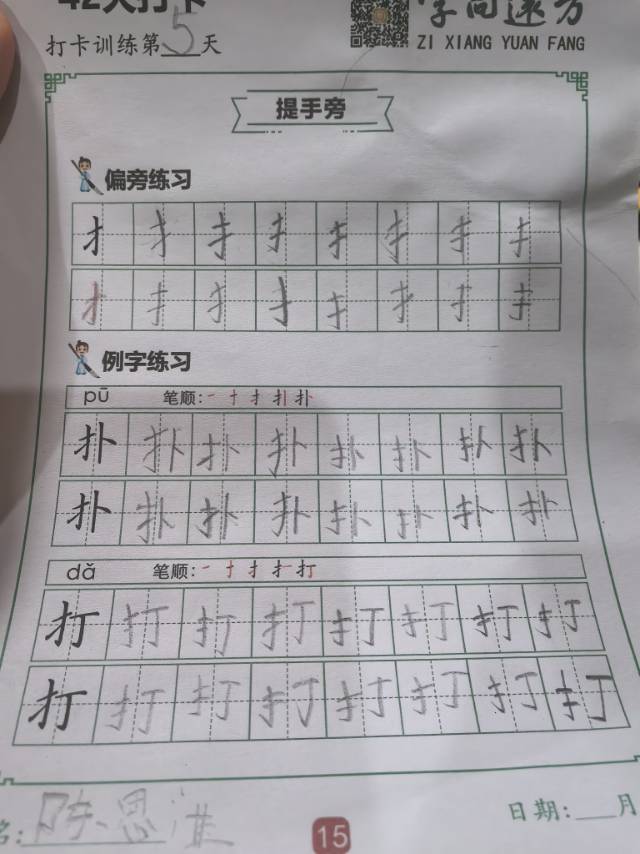 42天打卡
字向远方
打卡训练第5天
ZI XIANG YUAN FANG
提手旁
偏旁练习
扌扌扌扌扌扌扌扌
扌扌扌扌扌扌扌扌
例字练习
pū 笔顺:一 十 扌 扑 扑
扑扑扑扑扑扑扑扑
扑扑扑扑扑扑扑扑
dǎ 笔顺:一 十 扌 扌 打
打打打打打打打打
打打打打打打打打
名:陈思淮
日期:___月
15